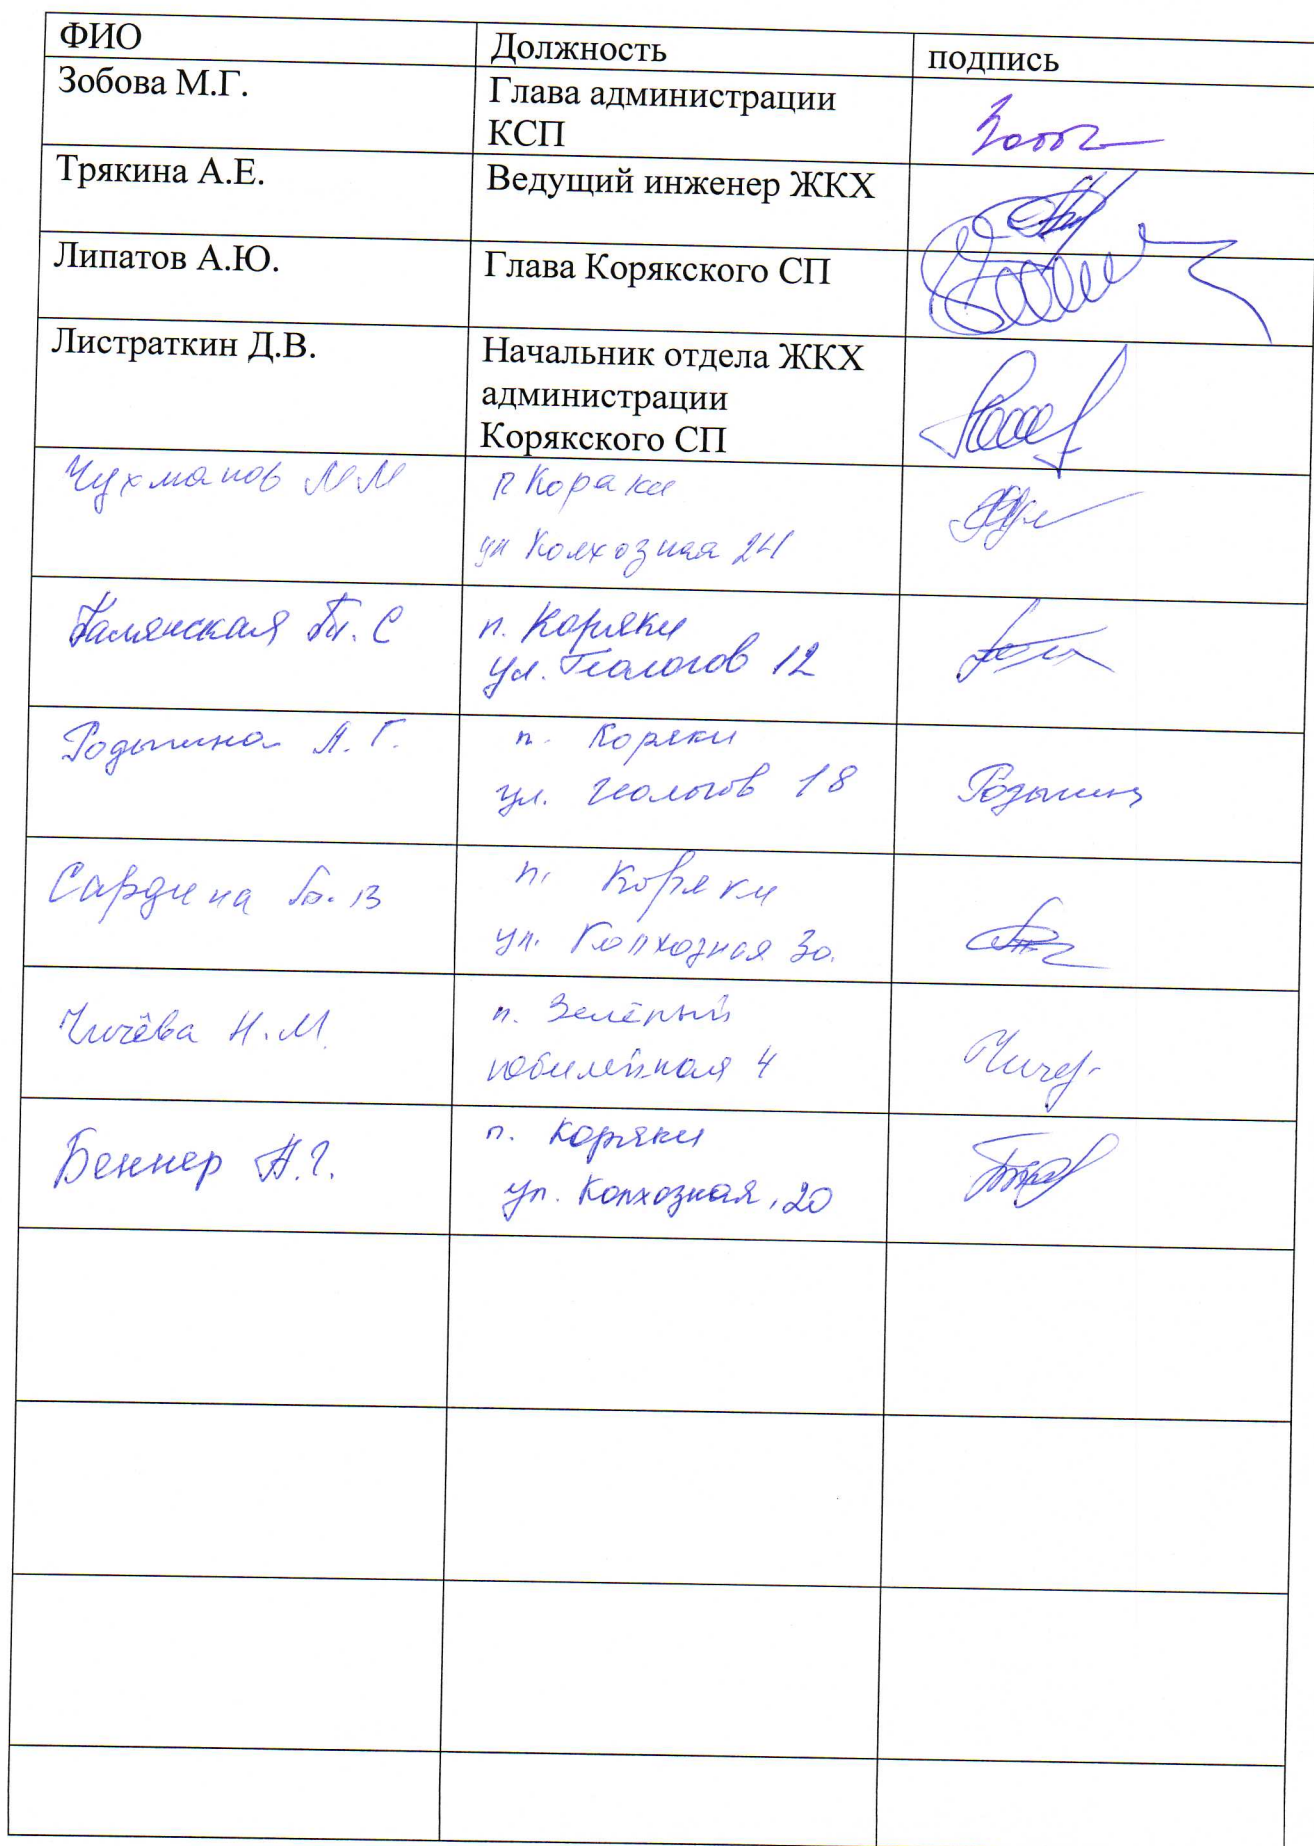 ФИО Должность подпись
Зобова М.Г. Глава администрации
КСП
Трякина А.Е. Ведущий инженер ЖКХ
Липатов А.Ю. Глава Корякского СП
Листраткин Д.В. Начальник отдела ЖКХ
администрации
Корякского СП
Чухманов М М п Коряки
ул Колхозная 24
п. Коряки
ул. Геологов 12
Родыгина А. Г. п. Коряки
ул. Геологов 18
Сардина п. Коряки
ул. Колхозная 30.
Чичёва Н.М. п. Зелёный
юбилейная 4
Беннер Н.Г. п. Коряки
ул. Колхозная, 20